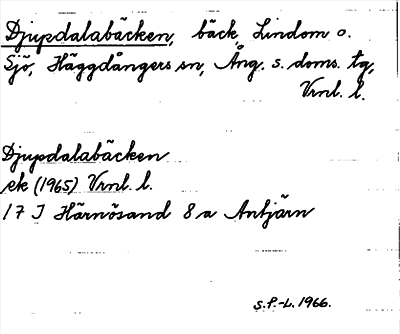 Djupdalabäcken, bäck, Lindom o.
Sjö, Häggdångers sn, Ång. s. doms. tg,
Vrnl. l.
Djupdalabäcken
ek (1965) Vrnl. l.
17 I Härnösand 8 a Antjärn
S.P.-L. 1966.